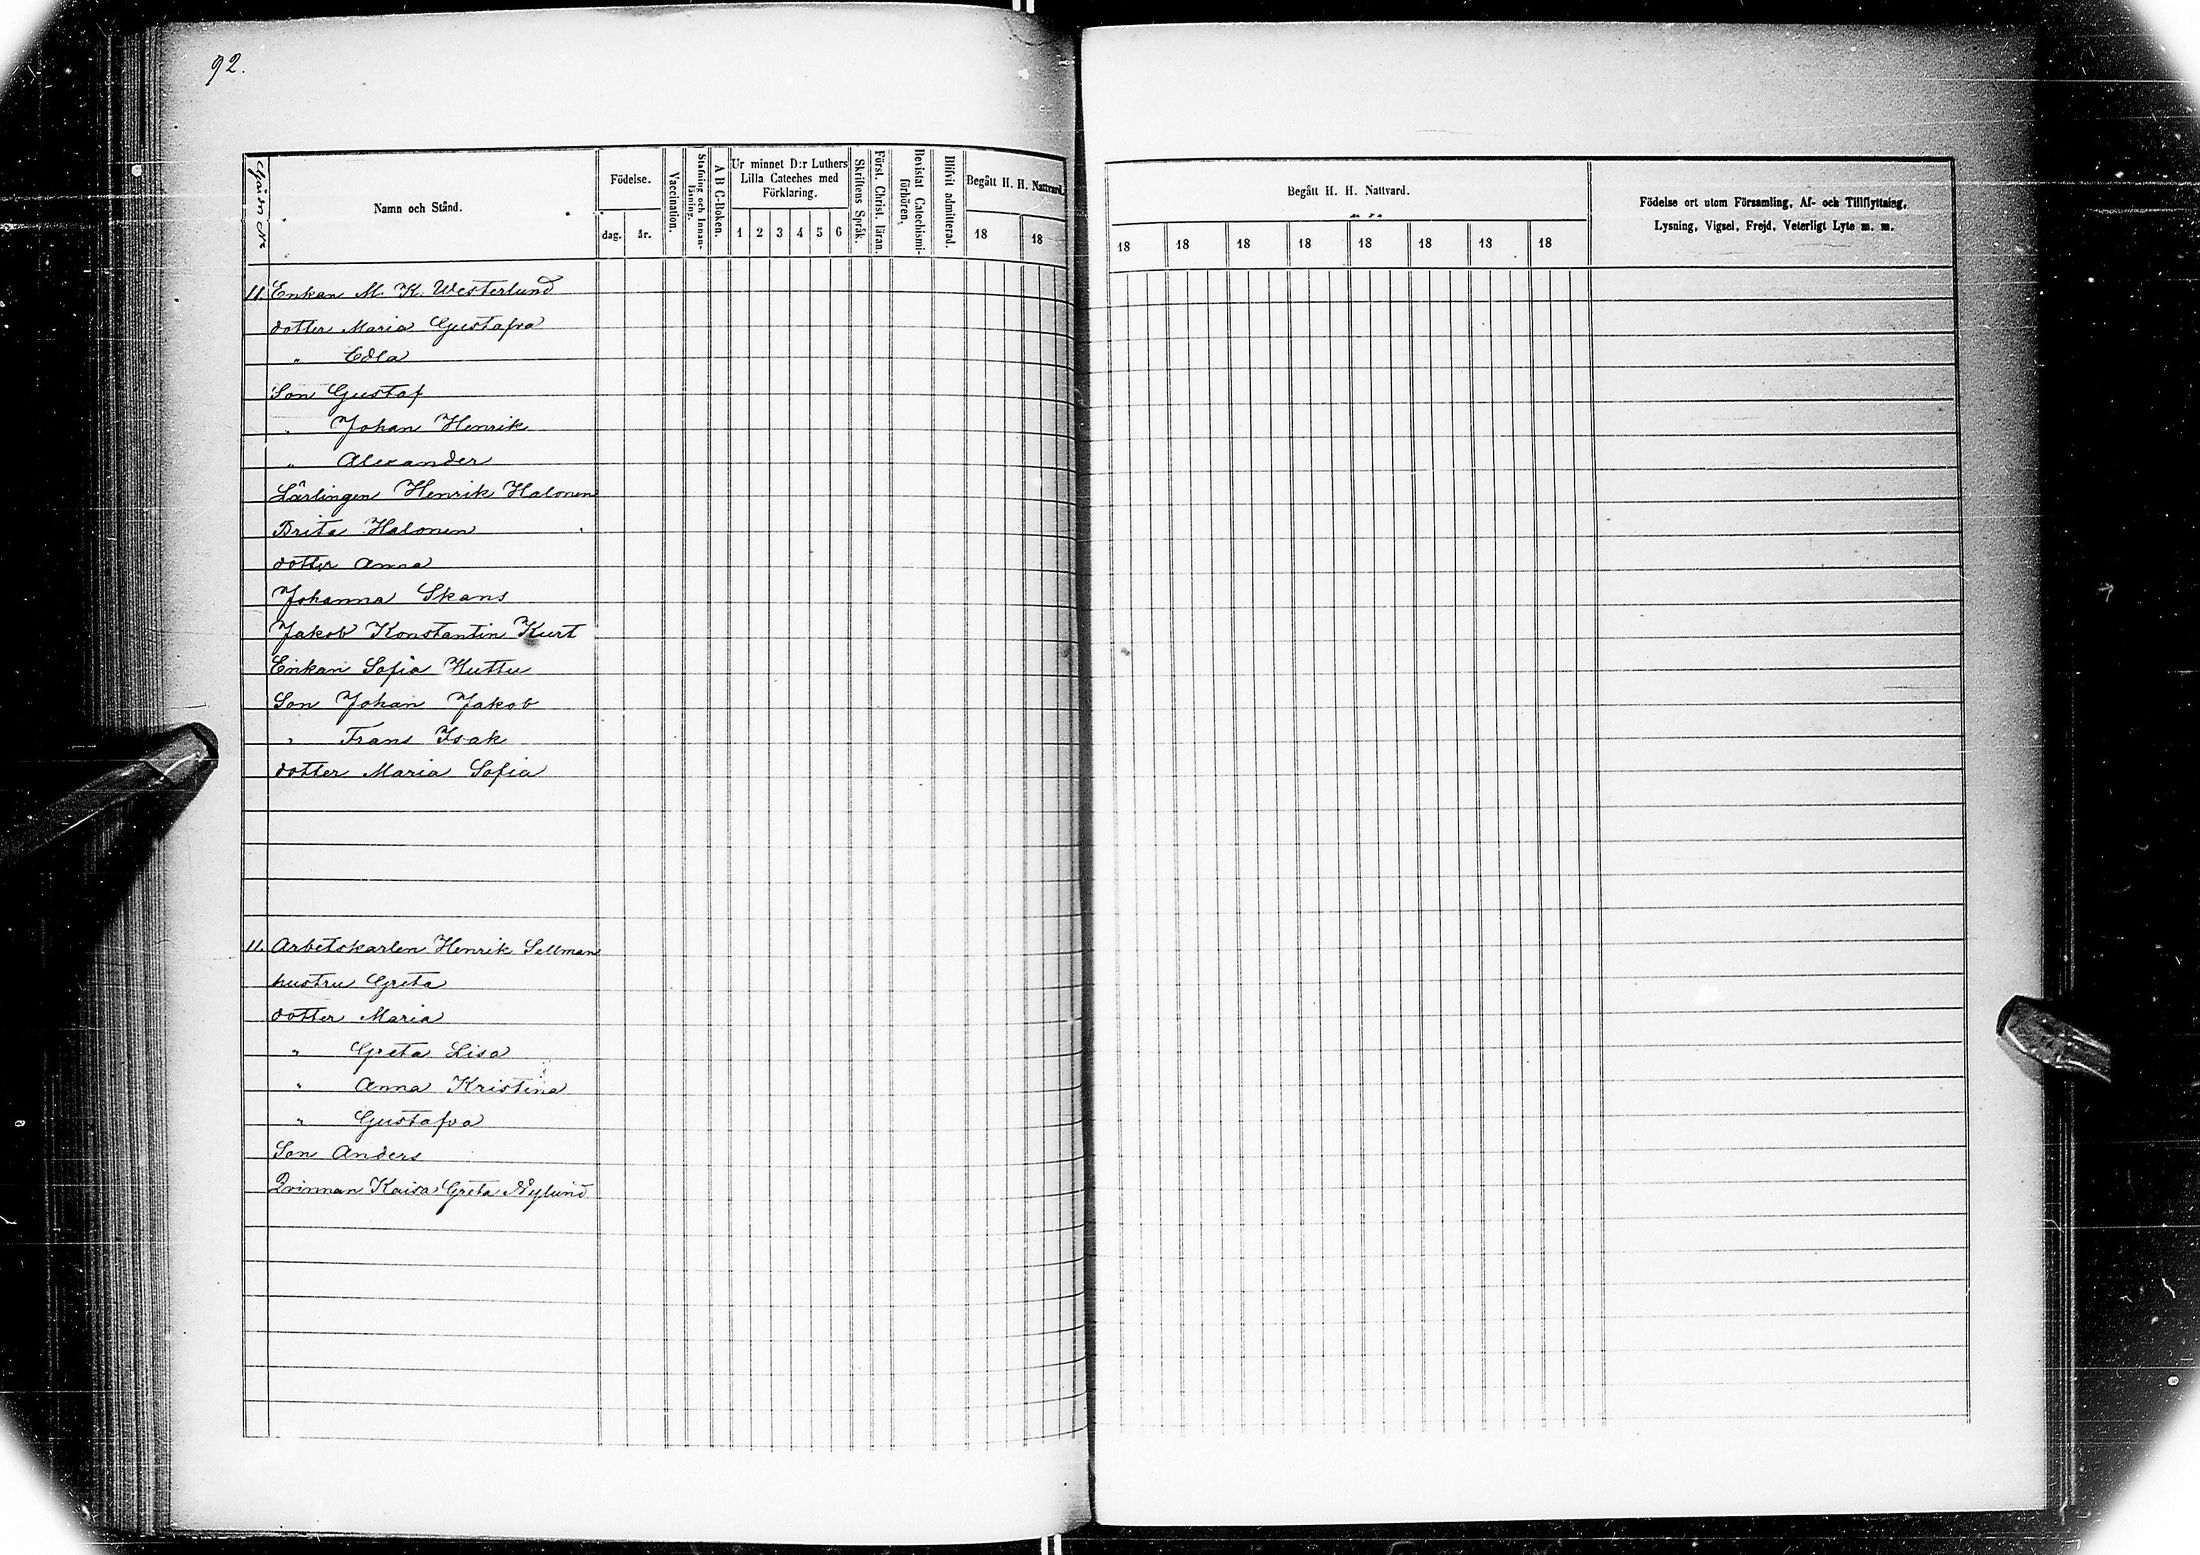 92.
Gård N:o
Namn och Stånd.
Födelse.
dag. år.
Vaccination.
Stafning och Innanläsning.
A B C-Boken.
Ur minnet D:r Luthers
Lilla Cateches med
Förklaring.
1 2 3 4 5 6
Skriftens Språk.
Först. Christ. läran.
Bevistat Catechismi-
förhören.
Blifvit admitterad.
Begått H. H. Nattvard.
18 18
Begått H. H. Nattvard.
18 18 18 18 18 18 18 18
Födelse ort utom Församling, Af- och Tillflyttning,
Lysning, Vigsel, Frejd, Veterligt Lyte m. m.
11. Enkan M. K. Westerlund
dotter Maria Gustafva
" Edla
Son Gustaf
" Johan Henrik
" Alexander
Lärlingen Henrik Halonen
Brita Halonen
dotter Anna
Johanna Skans
Jakob Konstantin Kurt
Enkan Sofia Huttu
Son Johan Jakob
" Frans Isak
dotter Maria Sofia
11. Arbetskarlen Henrik Sellman
hustru Greta
dotter Maria
" Greta Lisa
" Anna Kristina
" Gustafva
Son Anders
Qvinnan Kaisa Greta Nylund